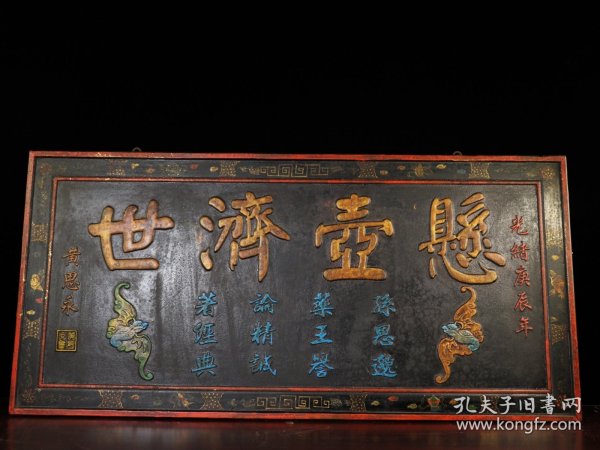 光緒庚辰年
懸壺濟世
孫思邈
藥王譽
論精誠
著經典
黄思永
孔夫子旧书网
www.kongfz.com